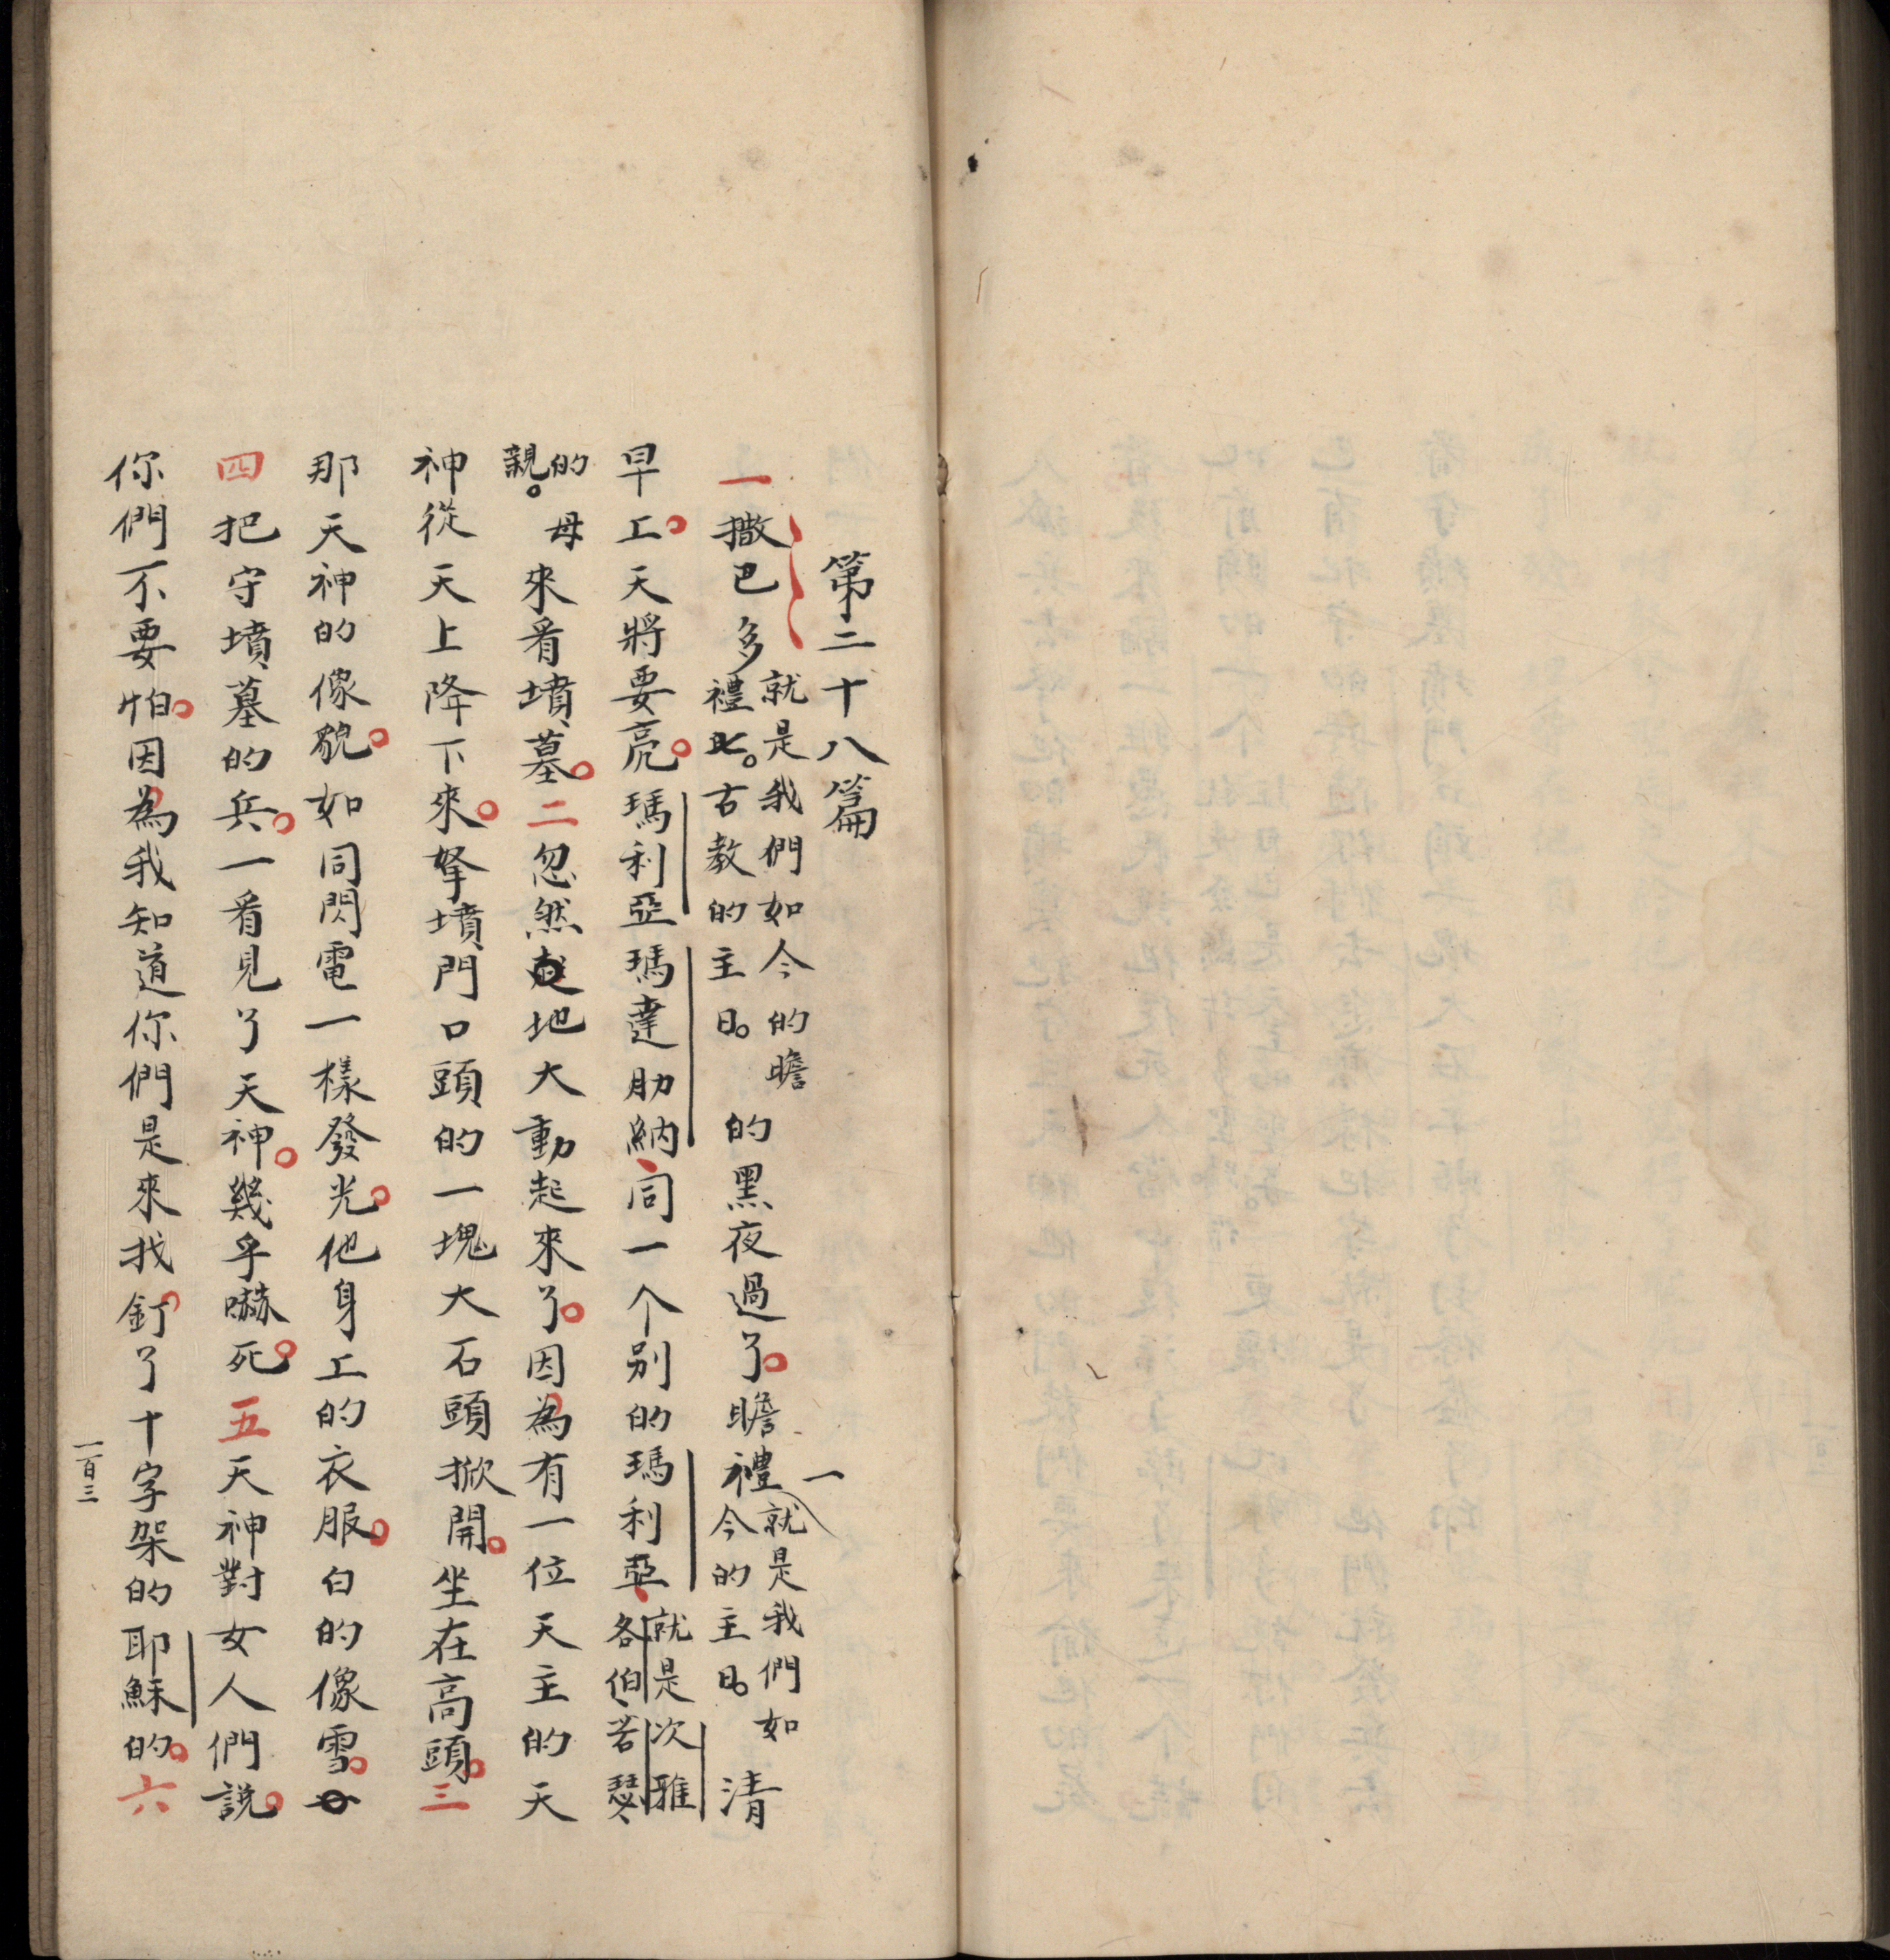 第二十八篇
一撒巴多就是我們如今的瞻禮七。古教的主日。的黑夜過了。瞻禮一就是我們如今的主日。清
早上。天將要亮。瑪利亞瑪達肋納、同一个别的瑪利亞、就是次雅各伯、若瑟、
的親。母來看墳墓。二忽然地大動起來了。因為有一位天主的天
神從天上降下來。拏墳門口頭的一塊大石頭掀開。坐在高頭。三
那天神的像貌。如同閃電一樣發光。他身上的衣服。白的像雪。
四把守墳墓的兵。一看見了天神。幾乎嚇死。五天神對女人們説。
你們不要怕。因為我知道你們是來找釘了十字架的耶穌的。六
一百三